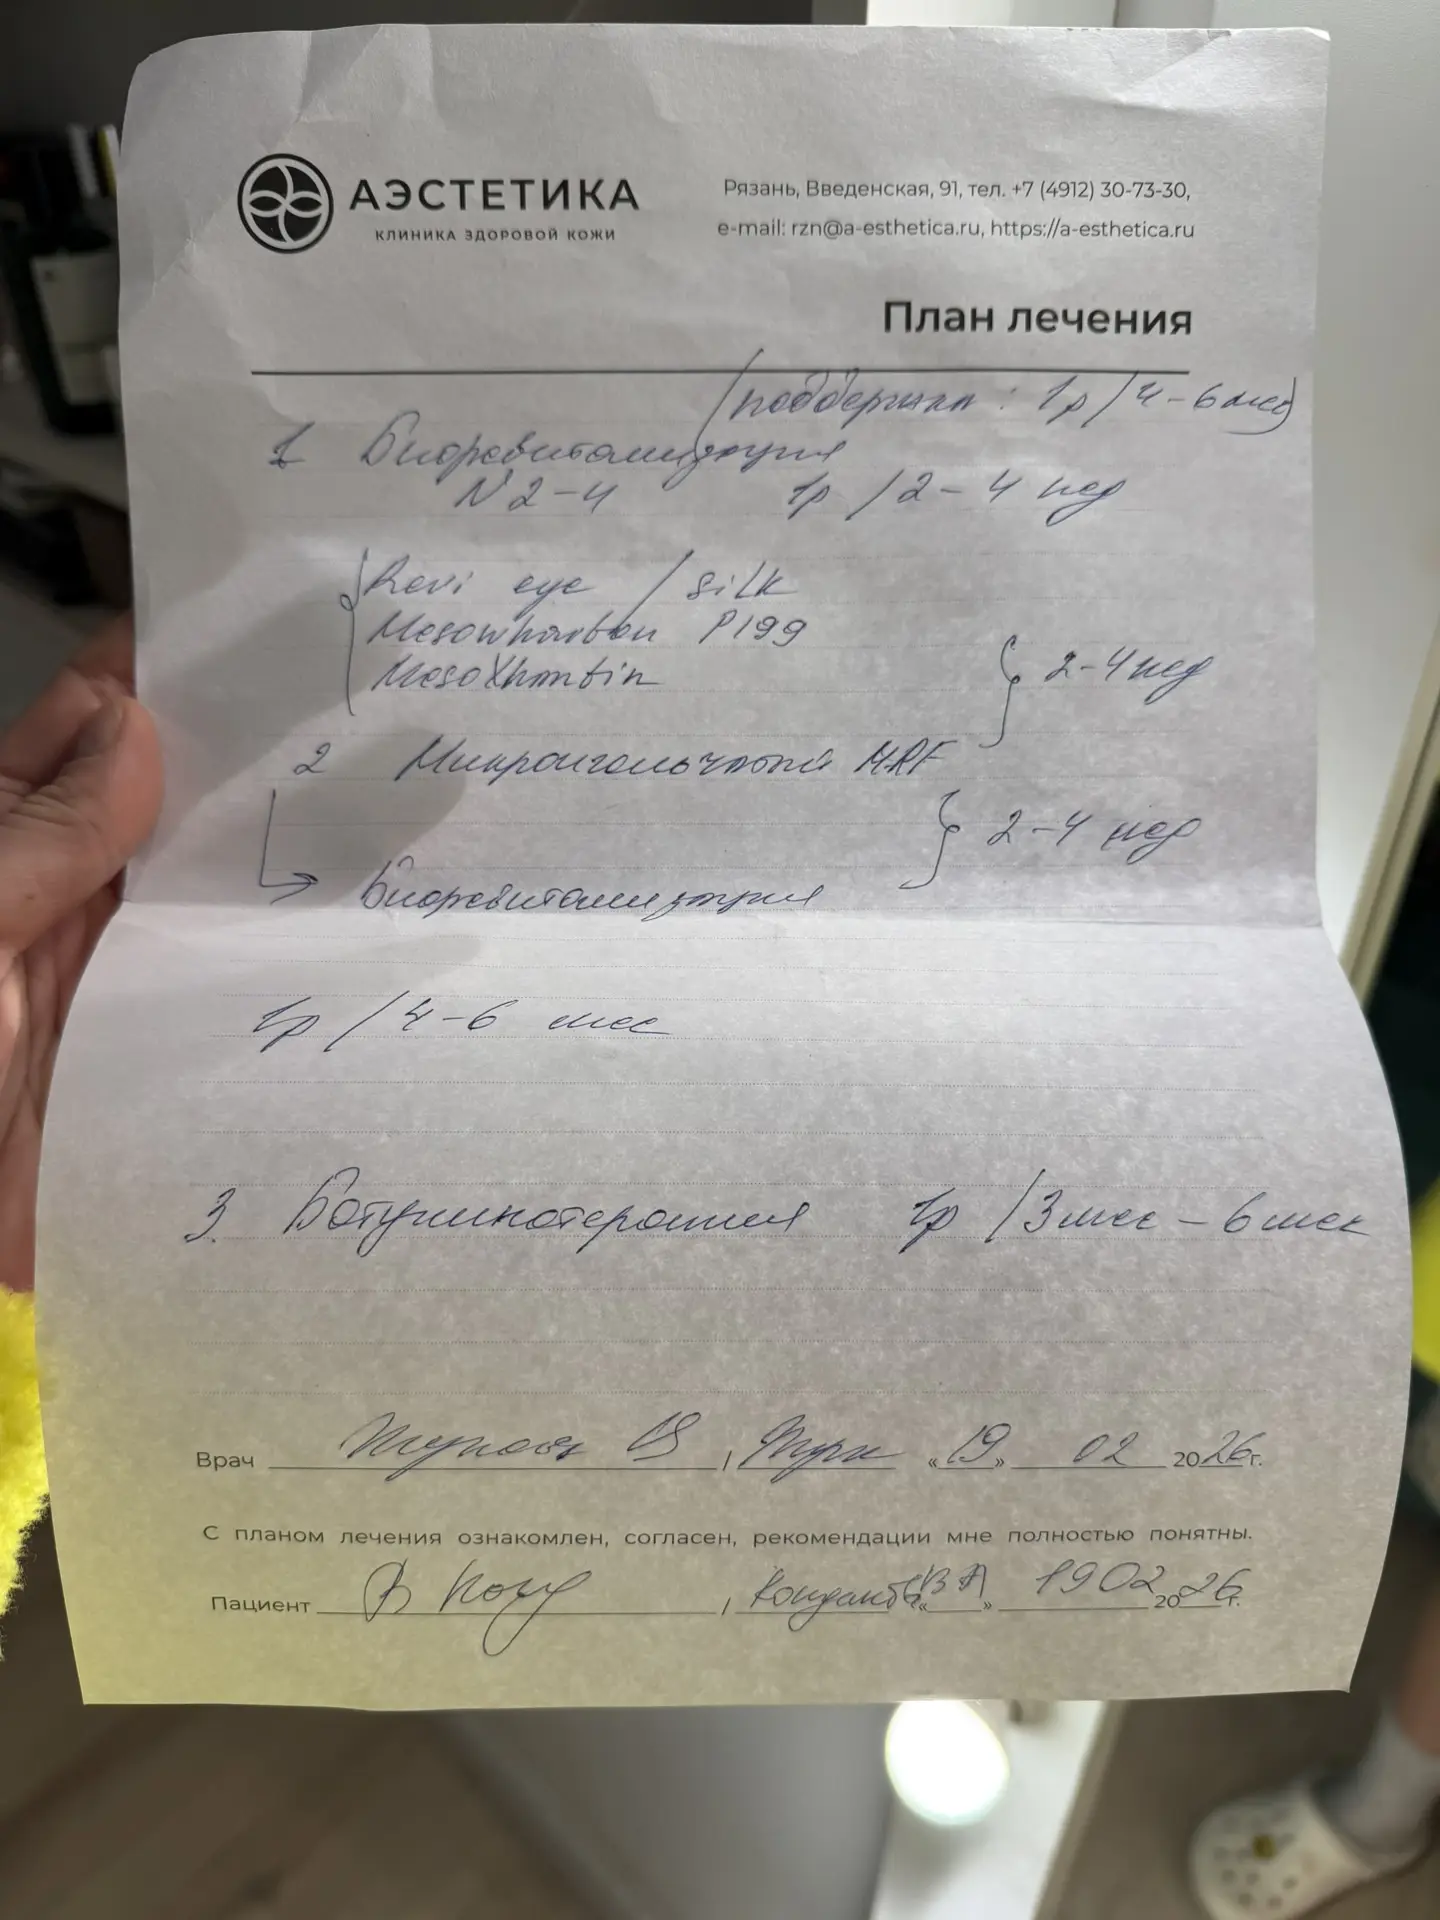 АЭСТЕТИКА
КЛИНИКА ЗДОРОВОЙ КОЖИ
Рязань, Введенская, 91, тел. +7 (4912) 30-73-30,
e-mail: rzn@a-esthetica.ru, https://a-esthetica.ru
План лечения
(поддержка: 1р/4-6 мес)
1 Биоревитализация
N 2-4 1р/2-4 нед
Revi eye / silk
Mesowharton P199
MesoXhantin
2-4 нед
2 Микроигольчатый MRF
2-4 нед
Биоревитализация
1р/4-6 мес
3. Ботулинотерапия 1р/3 мес - 6 мес
Врач / «19» 02 2026г.
С планом лечения ознакомлен, согласен, рекомендации мне полностью понятны.
Пациент / ВА « » 19 02 2026г.